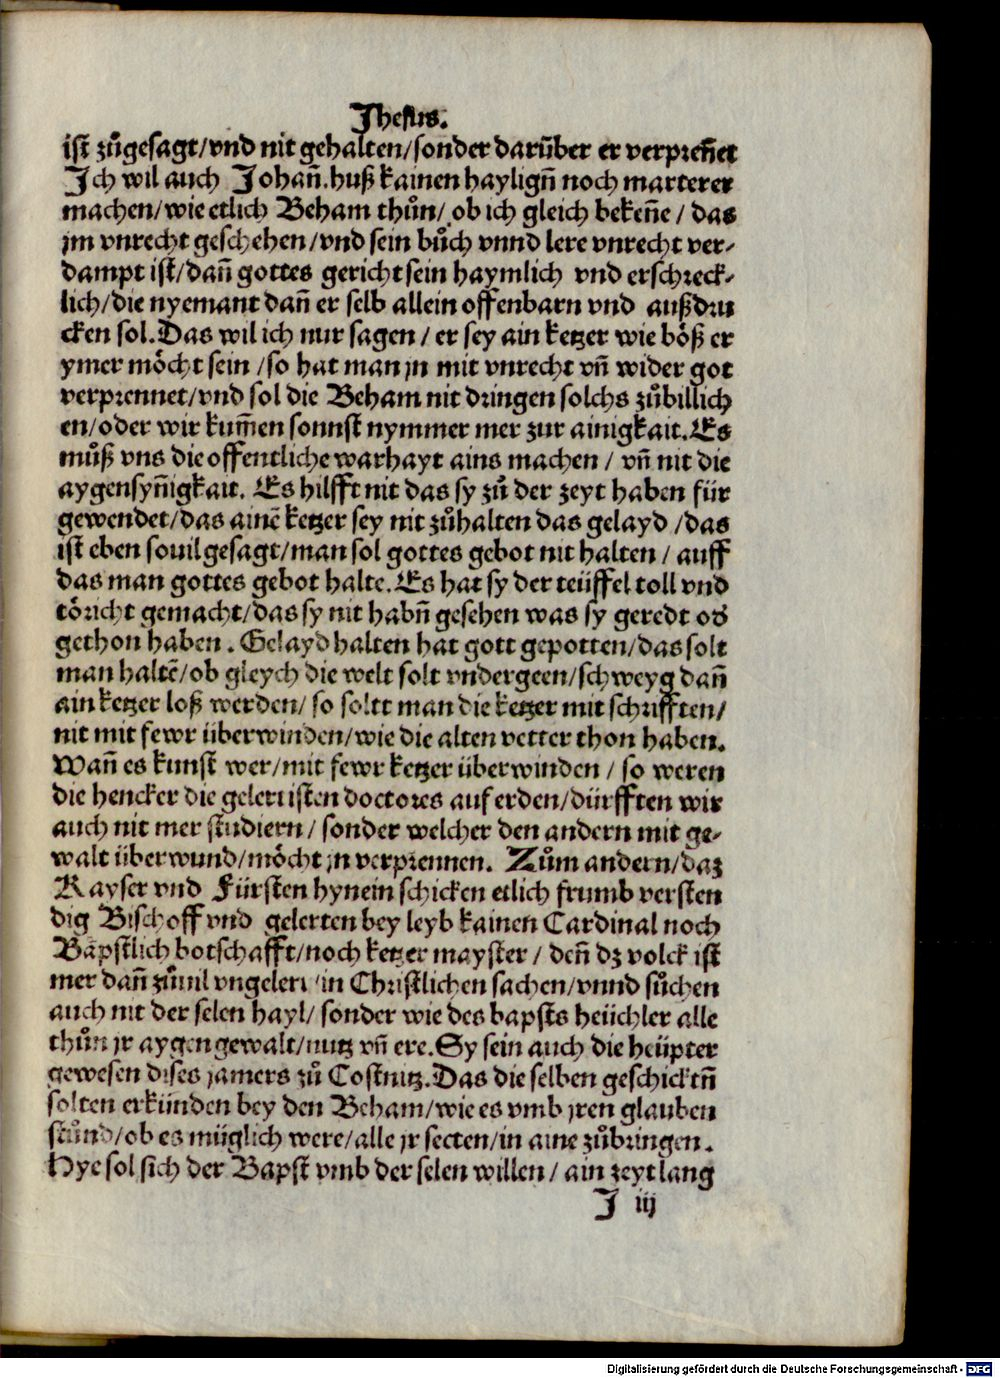 Jhesus.
ist zůgesagt/vnd nit gehalten/sonder darüber er verpreñet
Ich wil auch Johañ.huß kainen hayligñ noch marterer
machen/wie etlich Beham thůn/ ob ich gleich bekeñe / das
jm vnrecht geschehen/vnd sein bůch vnnd lere vnrecht ver-
dampt ist/dañ gottes gericht sein haymlich vnd erschreck-
lich/die nyemant dañ er selb allein offenbarn vnd außdru
cken sol.Das wil ich nur sagen / er sey ain ketzer wie böß er
ymer möcht sein /so hat man jn mit vnrecht vñ wider got
verprennet/vnd sol die Beham nit dringen solchs zůbillich
en/oder wir kum̃en sonnst nymmer mer zur ainigkait.Es
můß vns die offentliche warhayt ains machen / vñ nit die
aygensyñigkait. Es hilfft nit das sy zů der zeyt haben für
gewendet/das ainẽ ketzer sey nit zůhalten das gelayd /das
ist eben souil gesagt/man sol gottes gebot nit halten / auff
das man gottes gebot halte.Es hat sy der teüffel toll vnd
töricht gemacht/das sy nit habñ gesehen was sy geredt od̃
gethon haben . Gelayd halten hat gott gepotten/das solt
man haltẽ/ob gleych die welt solt vndergeen/schweyg dañ
ain ketzer loß werden/ so soltt man die ketzer mit schrifften/
nit mit fewr überwinden/wie die alten vetter thon haben.
Wañ es kunst wer/mit fewr ketzer überwinden / so weren
die hencker die gelertisten doctores auf erden/dürfften wir
auch nit mer studiern / sonder welcher den andern mit ge-
walt überwund/möcht jn verprennen. Zům andern/daz
Kayser vnd Fürsten hynein schicken etlich frumb versten
dig Bischoff vnd gelerten bey leyb kainen Cardinal noch
Bäpstlich botschafft/noch ketzer mayster / deñ dz volck ist
mer dañ zůuil vngelert /in Christlichen sachen/vnnd sůchen
auch nit der selen hayl/ sonder wie des bapsts heüchler alle
thůn jr aygen gewalt/nutz vñ ere.Sy sein auch die heüpter
gewesen dises jamers zů Costnitz.Das die selben geschicktñ
solten erkünden bey den Beham/wie es vmb jren glauben
stůnd/ob es müglich were/alle jr secten/in aine zůbringen.
Hye sol sich der Bapst vmb der selen willen / ain zeyt lang
J iij
Digitalisierung gefördert durch die Deutsche Forschungsgemeinschaft - DFG